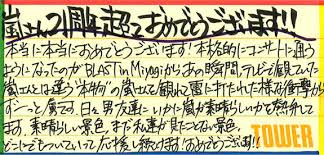 嵐さん21周年超っておめでとうございます!!
本当に本当におめでとうございます!本格的にコンサートに通う
ようになったのがBLAST in Miyagiからあの瞬間、テレビで観ていた
嵐さんとは違う"本物"の嵐さんを観れて雷に打たれた様な衝撃から
ずーっと虜です。日々男友達にいかに嵐が素晴らしいかを熱弁して
ます。素晴らしい景色、まだ私達が見たことない景色、
どこまでもついていって応援し続けます!おめでとうございます!!
TOWER